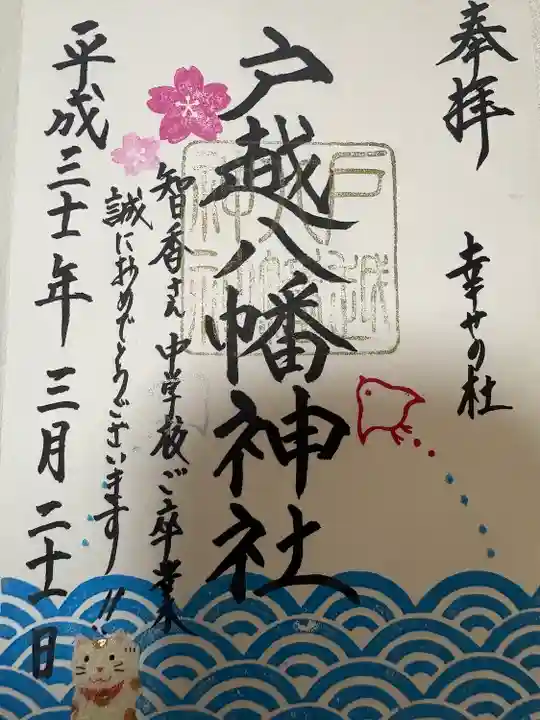 奉拝
幸せの杜
戸越八幡神社
戸越
八幡
神社
智香さん 中学校ご卒業
誠におめでとうございます!!
平成三十一年 三月二十一日